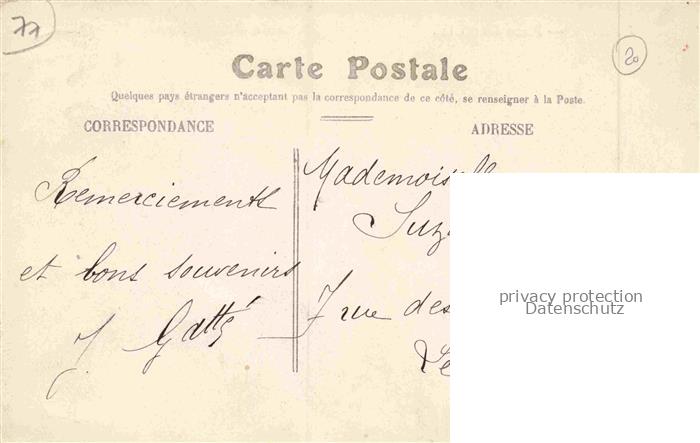 77
20
Carte Postale
Quelques pays étrangers n'acceptant pas la correspondance de ce côté, se renseigner à la Poste.
CORRESPONDANCE
ADRESSE
Remerciements
et bons souvenirs
J. Gatté
Mademois
Suz
7 rue des
privacy protection
Datenschutz